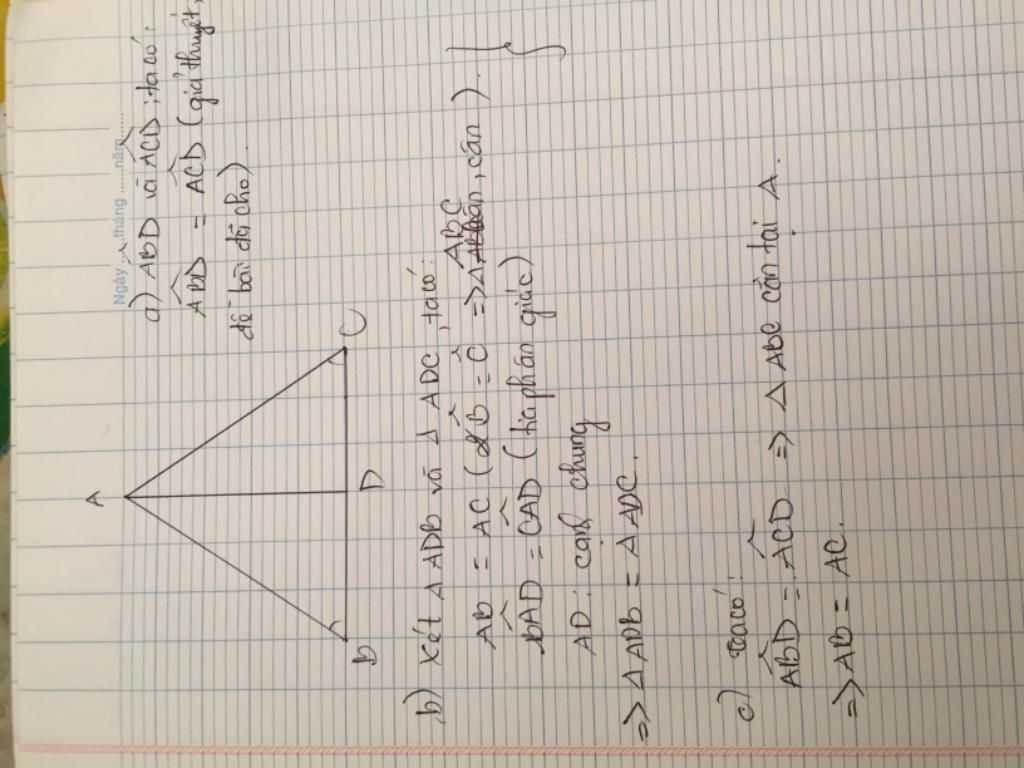 Ngày ...... tháng ...... năm ......
a) ABD và ACD; ta có:
ABD = ACD (giả thuyết,
đề bài đã cho).
A
B
D
C
b) Xét Δ ADB và Δ ADC, ta có:
AB = AC (B̂ = Ĉ => Δ ABC cân).
BAD = CAD (tia phân giác)
AD: cạnh chung
=> Δ ADB = Δ ADC.
c) ta có:
ABD = ACD => Δ ABC cân tại A.
=> AB = AC.